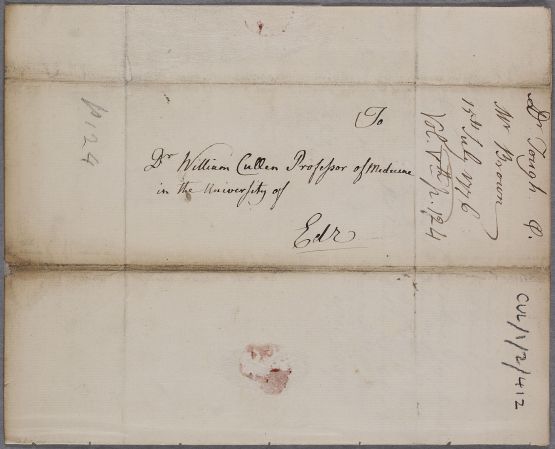 To
Dr William Cullen Professor of Medicine
in the University of
Edr
Dr Tough. P.
Mr Brown
15th July 1776
Vol. Vth p. 124
p. 124
CUL/1/2/412